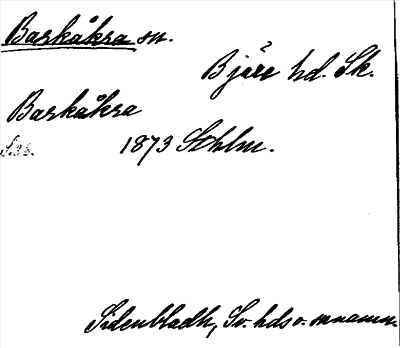 Barkåkra sn.
Bjäre hd. Sk.
Barkåkra
1873 Sthlm.
S. 36.
Sidenbladh, Sv. hds o. snnamn.